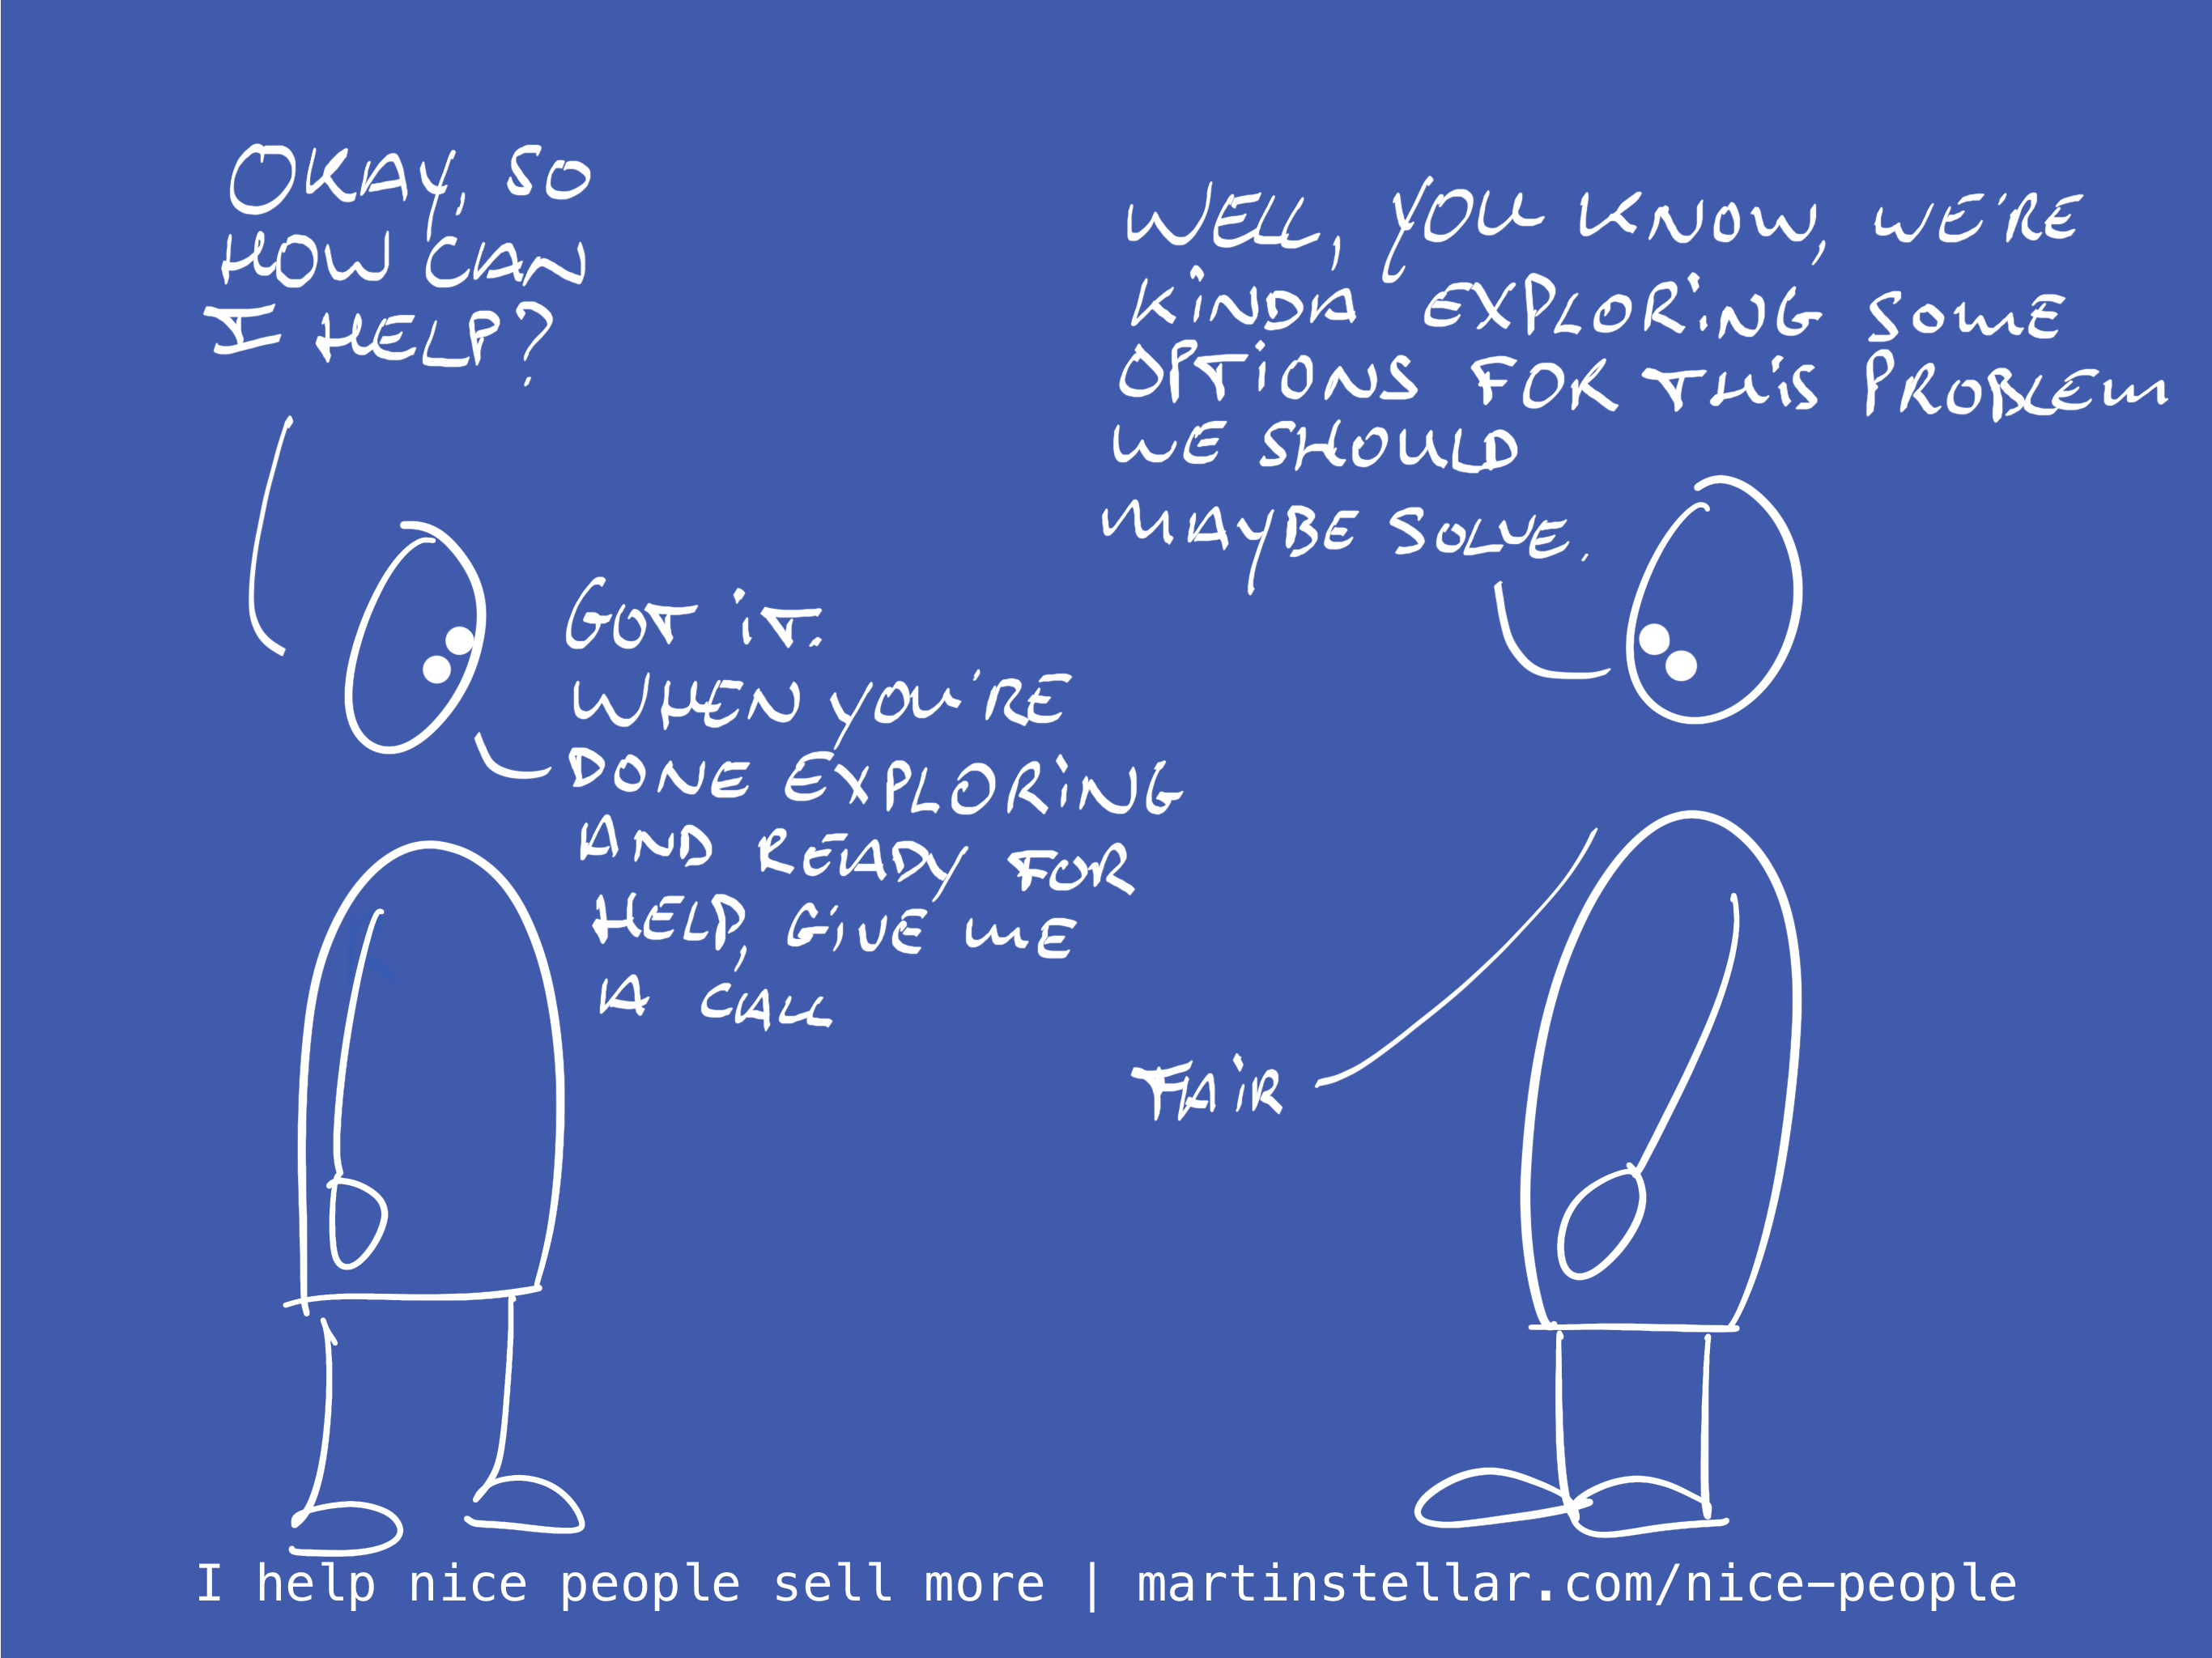 OKAY, SO
HOW CAN
I HELP?
WELL, YOU KNOW, WE'RE
KINDA EXPLORING SOME
OPTIONS FOR THIS PROBLEM
WE SHOULD
MAYBE SOLVE.
GOT IT.
WHEN YOU'RE
DONE EXPLORING
AND READY FOR
HELP, GIVE ME
A CALL
FAIR
I help nice people sell more | martinstellar.com/nice-people